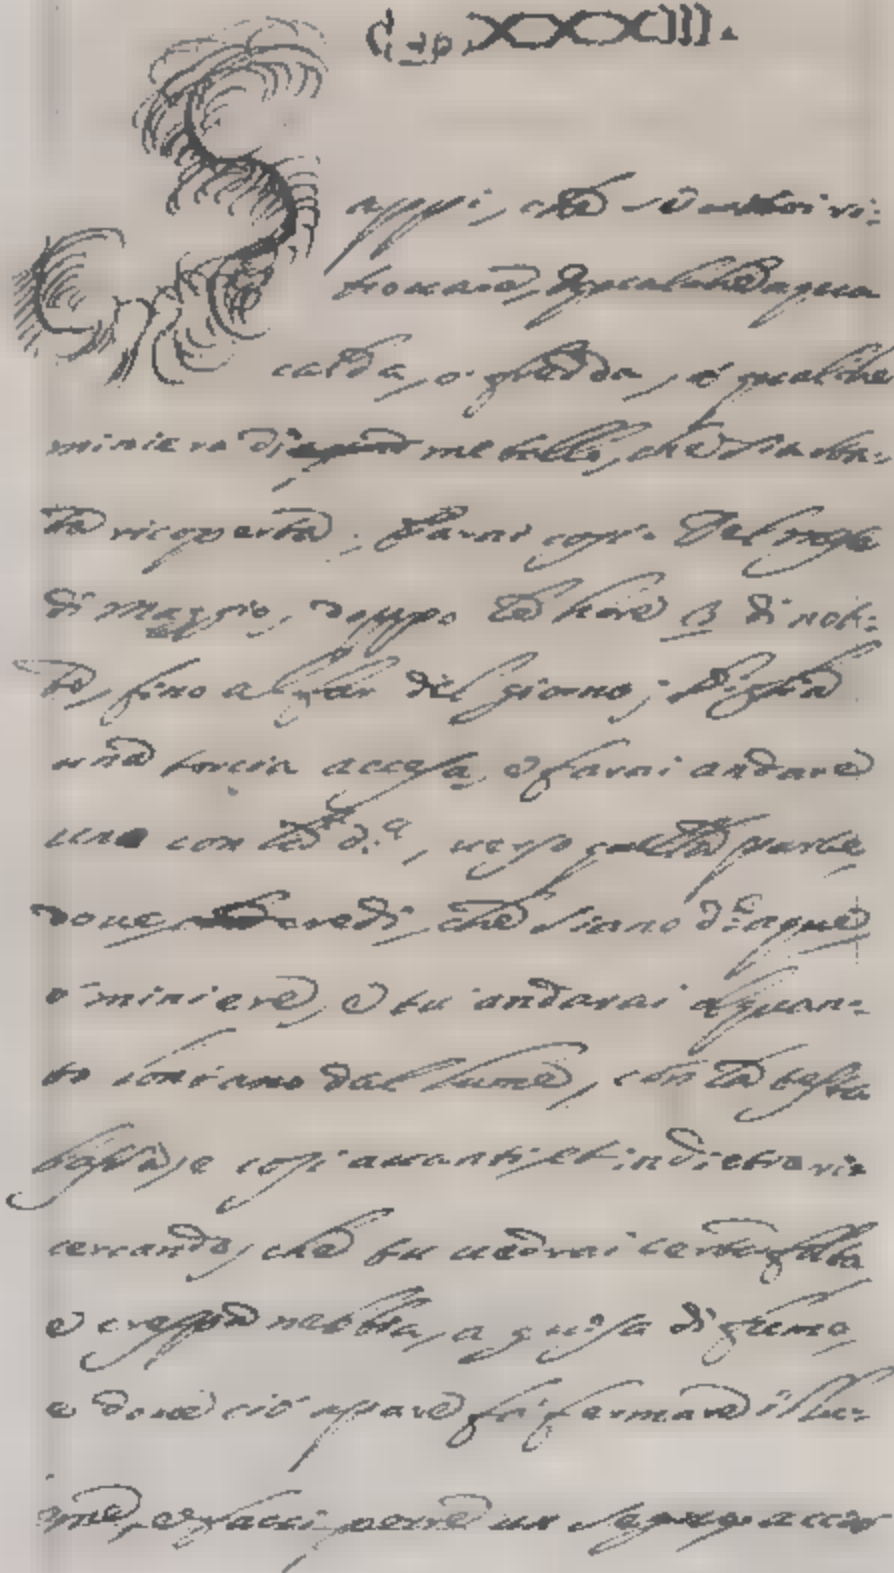 Cap. XXXXIII.
Sappi, che se vuoi ri:
trovare, qualche aqua
calda, o' fredda, o' qualche
miniera di metalli, che sia sta:
ta ricoperta; Farai cosi. Del mese
di Maggio, doppo le hore 3 di not:
te, fino al far del giorno; Piglia
una torcia accesa, e farai andare
uno con la d.a, verso quella parte
doue credi, che siano d.e aque
o' miniere, e tu andarai alquan:
to lontano dal lume, con la testa
bassa, e cosi auanti, et indietro ri:
cercando, che tu uedrai certa folta
e crespa nebbia, a guisa di fumo,
e doue ciò appare fa' fermare il lu:
me, e facci porre un segno accio